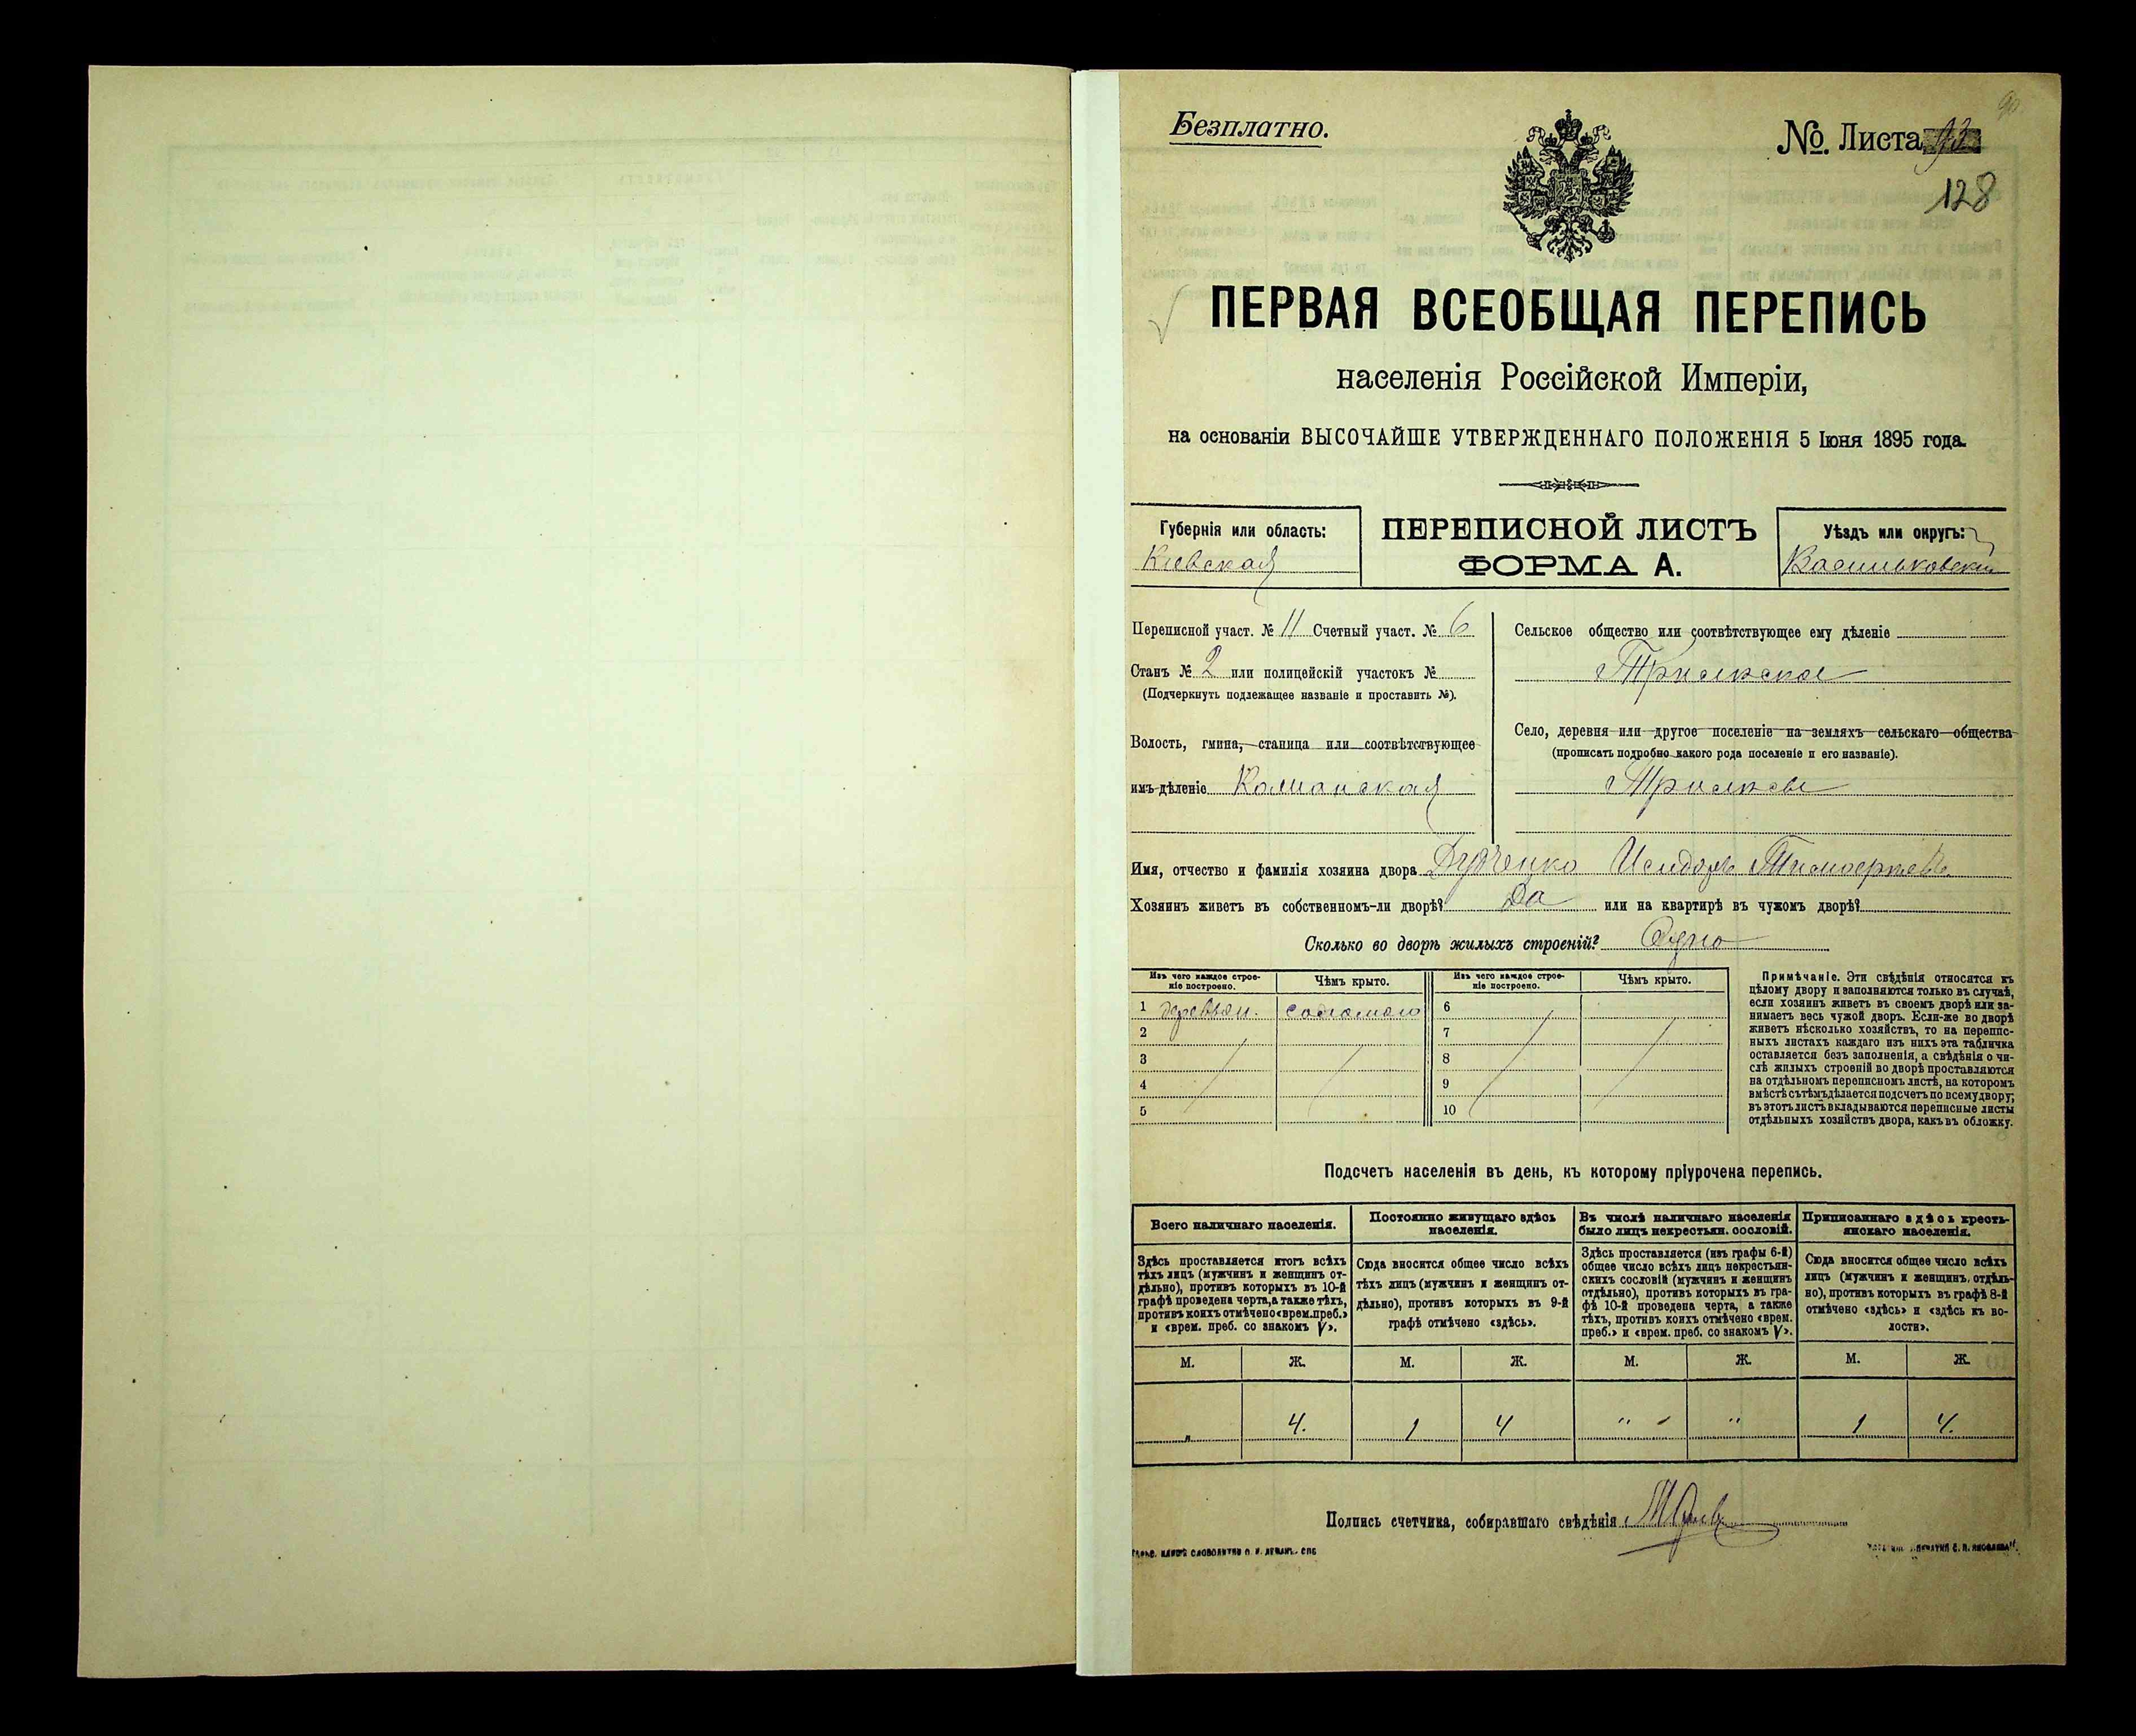 Безплатно.
№ Листа
128
ПЕРВАЯ ВСЕОБЩАЯ ПЕРЕПИСЬ
населенія Россійской Имперіи,
на основаніи ВЫСОЧАЙШЕ УТВЕРЖДЕННАГО ПОЛОЖЕНІЯ 5 Іюня 1895 года.
Губернія или область:
Кіевская
ПЕРЕПИСНОЙ ЛИСТЪ
ФОРМА А.
Уѣздъ или округъ:
Васильковскій
Переписной участ. № 11 Счетный участ. № 6
Станъ № 2 или полицейскій участокъ №
(Подчеркнуть подлежащее названіе и проставить №).
Волость, гмина, станица или соотвѣтствующее
имъ дѣленіе
Сельское общество или соотвѣтствующее ему дѣленіе
Трилѣсское
Село, деревня или другое поселеніе на земляхъ сельскаго общества
(прописать подробно какого рода поселеніе и его названіе).
Трилѣсы
Имя, отчество и фамилія хозяина двора Исидоръ Тимофеевъ
Хозяинъ живетъ въ собственномъ-ли дворѣ? Да или на квартирѣ въ чужомъ дворѣ?
Сколько во дворѣ жилыхъ строеній? Одно
Изъ чего каждое строе-
ніе построено.
Чѣмъ крыто.
Изъ чего каждое строе-
ніе построено.
Чѣмъ крыто.
1 деревян. соломою 6
2 7
3 8
4 9
5 10
Примѣчаніе. Эти свѣдѣнія относятся къ
цѣлому двору и заполняются только въ случаѣ,
если хозяинъ живетъ въ своемъ дворѣ или за-
нимаетъ весь чужой дворъ. Если-же во дворѣ
живетъ нѣсколько хозяйствъ, то на перепис-
ныхъ листахъ каждаго изъ нихъ эта табличка
оставляется безъ заполненія, а свѣдѣнія о чи-
слѣ жилыхъ строеній во дворѣ проставляются
на отдѣльномъ переписномъ листѣ, на которомъ
вмѣстѣ съ тѣмъ дѣлается подсчетъ по всему двору;
въ этотъ листъ вкладываются переписные листы
отдѣльныхъ хозяйствъ двора, какъ въ обложку.
Подсчетъ населенія въ день, къ которому пріурочена перепись.
Всего наличнаго населенія.
Здѣсь проставляется итогъ всѣхъ
тѣхъ лицъ (мужчинъ и женщинъ от-
дѣльно), противъ которыхъ въ 10-й
графѣ проведена черта, а также тѣхъ,
противъ коихъ отмѣчено «врем. преб.»
и «врем. преб. со знакомъ V».
Постоянно живущаго здѣсь
населенія.
Сюда вносится общее число всѣхъ
тѣхъ лицъ (мужчинъ и женщинъ от-
дѣльно), противъ которыхъ въ 9-й
графѣ отмѣчено «здѣсь».
Въ числѣ наличнаго населенія
было лицъ некрестьян. сословій.
Здѣсь проставляется (изъ графы 6-й)
общее число всѣхъ лицъ некрестьян-
скихъ сословій (мужчинъ и женщинъ
отдѣльно), противъ которыхъ въ гра-
фѣ 10-й проведена черта, а также
тѣхъ, противъ коихъ отмѣчено «врем.
преб.» и «врем. преб. со знакомъ V».
Приписаннаго здѣсь кресть-
янскаго населенія.
Сюда вносится общее число всѣхъ
лицъ (мужчинъ и женщинъ, отдѣль-
но), противъ которыхъ въ графѣ 8-й
отмѣчено «здѣсь» и «здѣсь въ во-
лости».
М. Ж. М. Ж. М. Ж. М. Ж.
" 4. 1 4 " " 1 4.
Подпись счетчика, собиравшаго свѣдѣнія